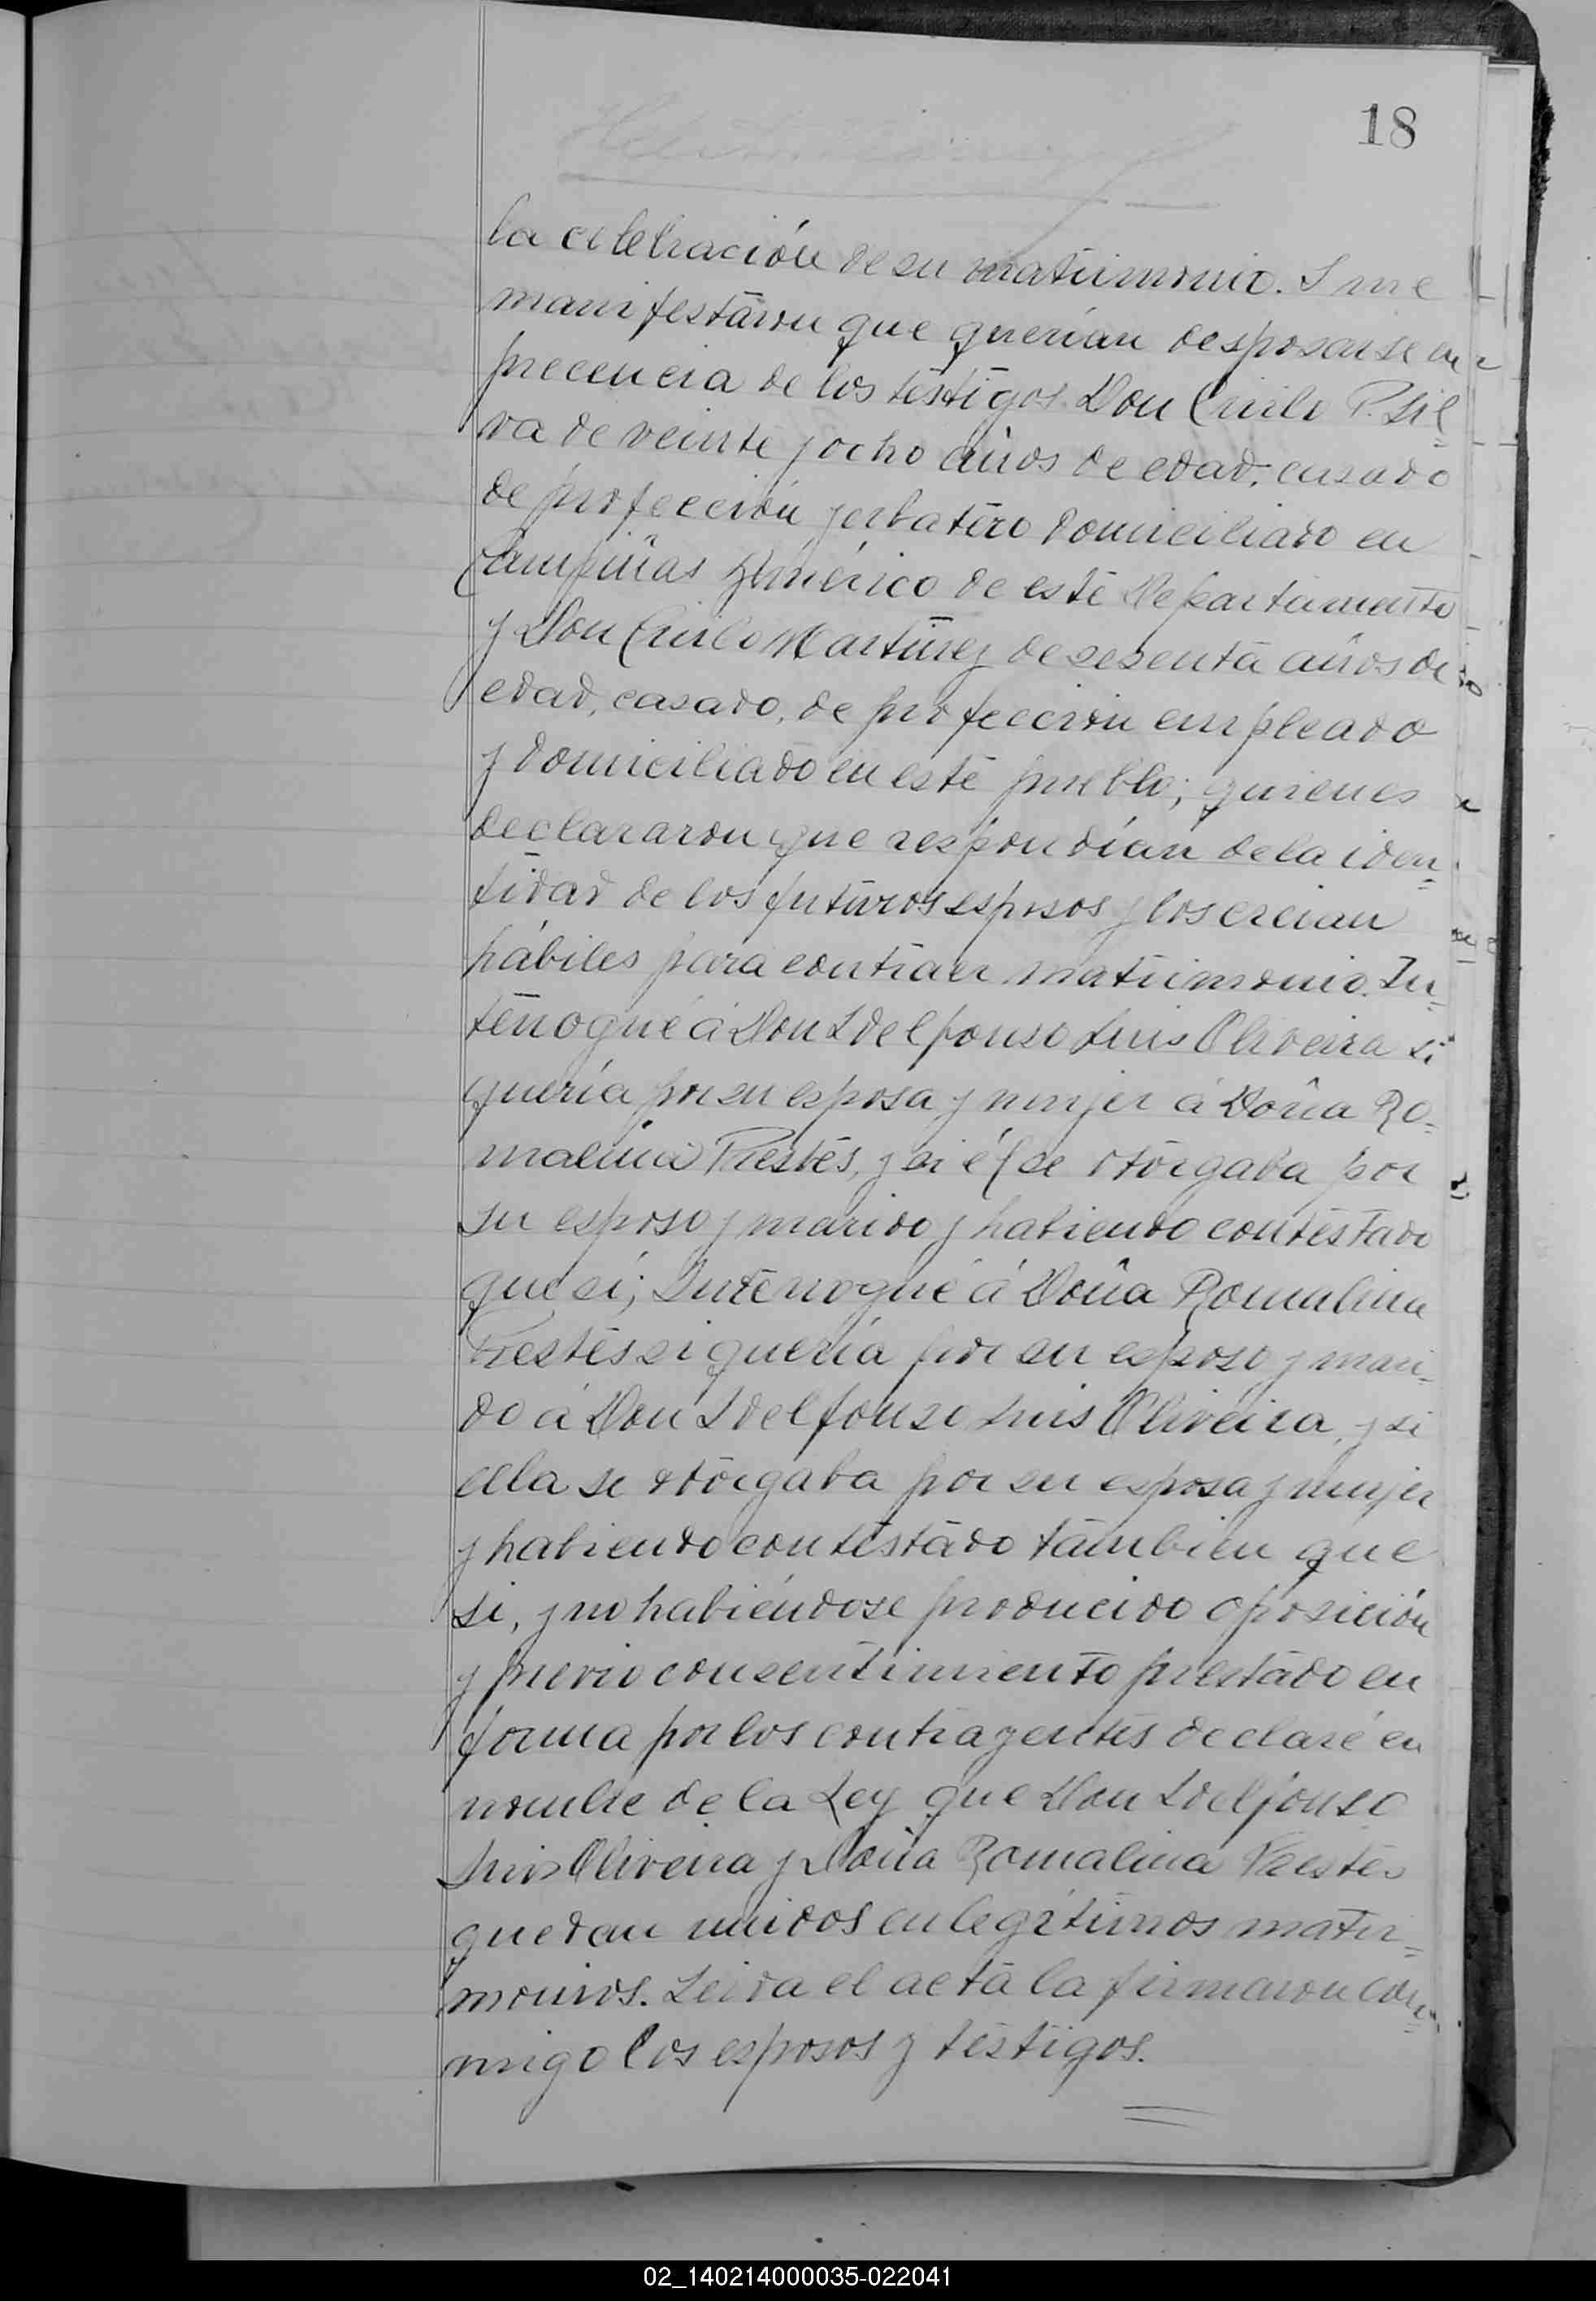 18
la celebración de su matrimonio. I me
manifestáron que querian desposarse en
precencia de los testigos Don Cirilo P. Sil=
va de veinte y ocho años de edad, casado
de profección yerbatero domiciliado en
Campiñas Américo de este Departamento
y Don Cirilo Martinez de sesenta años de
edad, casado, de profección empleado
y domiciliado en este pueblo; quienes
declararon que respondían de la iden=
tidad de los futuros esposos y los creian
hábiles para contraer matrimonio. In=
terrogué á Don Idelfonso Luis Oliveira si
quería por su esposa y mujer á Doña Ro=
malina Prestes, y si él se otorgaba por
su esposo y marido y habiendo contestado
que sí; Interrogué á Doña Romalina
Prestes si quería por su esposo y mari=
do á Don Idelfonso Luis Oliveira, y si
ella se otorgaba por su esposa y mujer
y habiendo contestado tambien que
si, y no habiéndose producido oposición
y previo consentimiento prestado en
forma por los contrayentes declaré en
nombre de la Ley que Don Idelfonso
Luis Oliveira y Doña Romalina Prestes
quedan unidos en legítimos matri=
monios. Leida el acta la firmaron con=
migo los esposos y testigos.
02_140214000035-022041